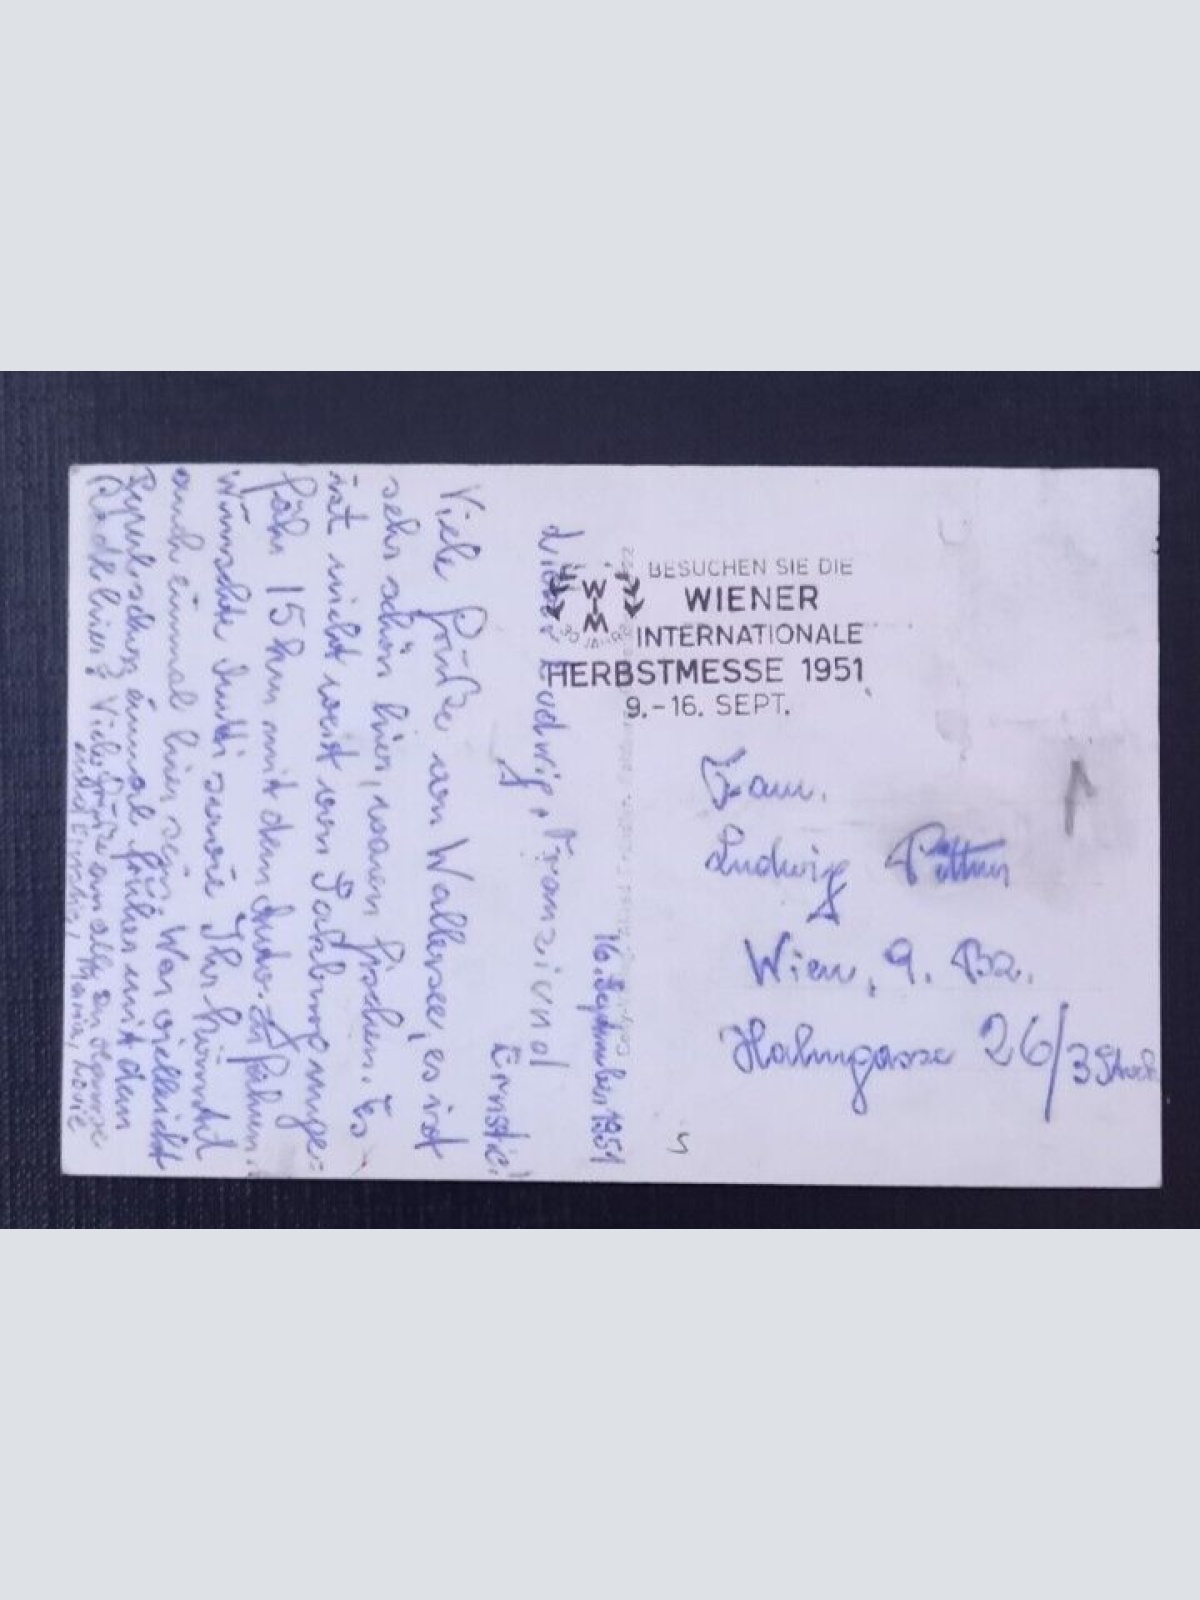 16. September 1951
Lieber Ludwig, Franzi und
Ernsti!
Viele Grüße vom Wallersee, es ist
sehr schön hier, waren fischen. Es
ist nicht weit von Salzburg unge=
fähr 15 km mit dem Auto zu fahren.
Wünschte Mutti sowie Ihr könnt
auch einmal hier sein. War vielleicht
einmal früher mit dem
Rad hier? Viele Grüße an alle
und Maria,
BESUCHEN SIE DIE
WIENER
INTERNATIONALE
HERBSTMESSE 1951
9.-16. SEPT.
W
M
30 JAHRE
Fam.
Ludwig
Wien, 9. Bz.
Hahngasse 26/3 Stock
1
5